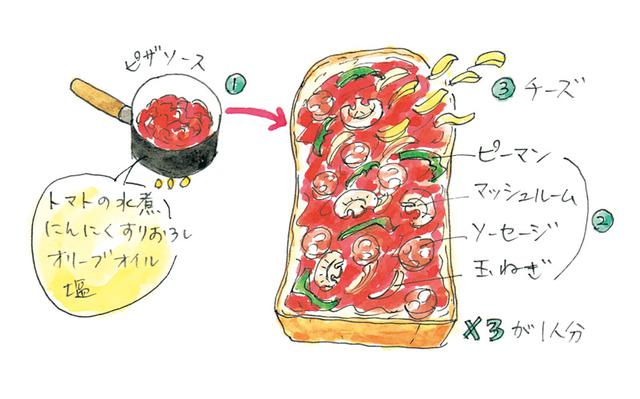 ピザソース
①
トマトの水煮
にんにくすりおろし
オリーブオイル
塩
③ チーズ
ピーマン
マッシュルーム
②
ソーセージ
玉ねぎ
×3が1人分